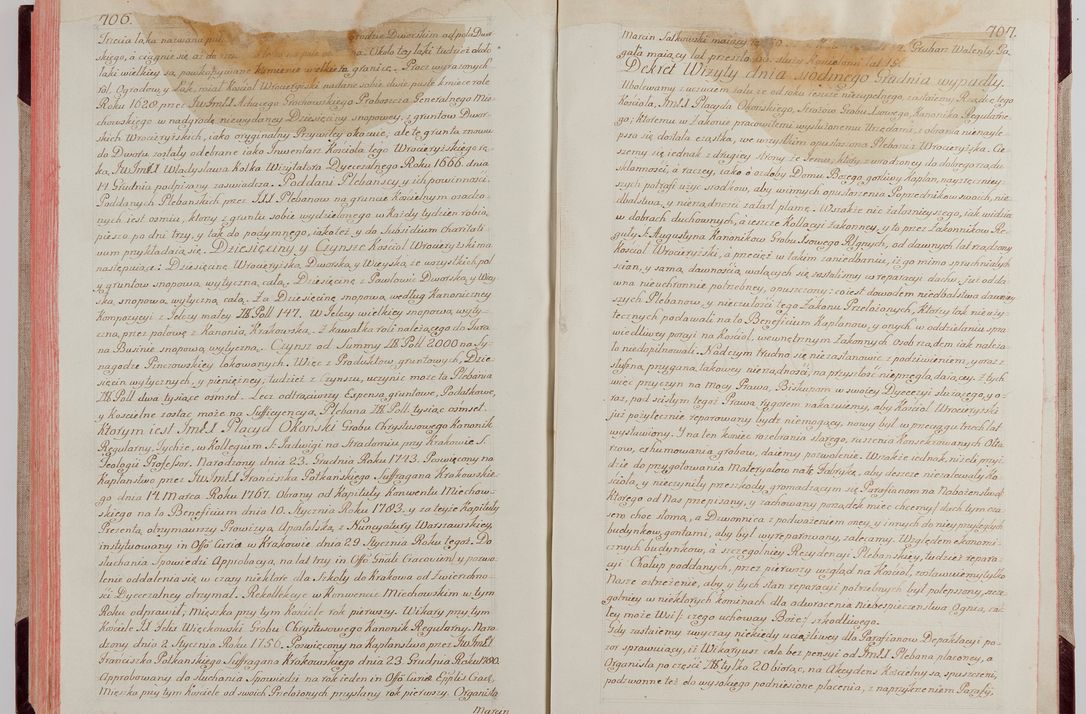 706.
Trzecia łąka nazwana
skiego, a ciągnie się aż do
łąki wielkiey są powkopywane kamienie wielkie za granice. Prócz wyrażonych
ról, Ogrodow, y łąk, miał Kosciół Wrocieryżski nadane sobie dwie puste kmiece role
Roku 1620 przez JWImci Achacego Grochowskiego Proboszcza Generalnego Mie-
chowskiego w nadgrodę niewydaney Dziesięciny snopowey, z gruntow Dwor-
skich Wrocieryżskich, iako oryginalny Przywiley okazuie; ale te grunta znowu
do Dworu zostały odebrane iako Inwentarz Kościoła tego Wrocieryżskiego rę-
ką JWImci Władysława Wizytatora Dyecezalnego Roku 1666. dnia
14 Grudnia podpisany zaswiadcza. Poddani Plebanscy, y ich powinnosci.
Poddanych Plebańskich przez JJJ Plebanow na gruncie Kościelnym osadzo-
nych iest osmiu, ktorzy z gruntu sobie wydzielonego w każdy tydzień robią
pieszo po dni trzy, y tak do podymnego, iako też y do Subsidium charitati-
vum przykładaią się. Dziesięciny y Czynsze Kosciół Wrocieryżski ma
następuiące: Dziesięcinę Wrocieryżską Dworską, y Wieyską ze wszystkich pól
y gruntow snopową, wytyczną całą. Dziesięcinę z Pawłowic Dworską, y Wiey-
ską, snopową, wytyczną całą. Za Dziesięcinę snopową według Kanoniczney
Kompozycyi z Jelczy małey Zł Poll 147. W Jelczy wielkiey snopową, wyty-
czną przez połowę z Kanonią Krakowską. Z kawałka roli należącego do Jura
na Businie snopową wytyczną. Czynsz od Summy Zł Poll 2000 na Sy-
nagodze Pinczowskiey lokowanych. Więc z Produktow gruntowych, Dzie-
sięcin wytycznych, y pieniężney, tudzież z Czynszu, uczynić może ta Plebania
Zł Poll dwa tysiące osmset. Lecz odtrąciwszy Expensa gruntowe, Podatkowe,
y Kościelne zostać może na Sufficyencyą Plebana Zł Poll. tysiąc osmset.
Ktorym iest Jmci X Placyd Okoński Grobu Chrystusowego Kanonik
Regularny, tychże, w Kollegium S: Jadwigi na Stradomiu przy Krakowie S.
Teologii Professor. Narodzony dnia 23. Grudnia Roku 1743. Poswięcony na
Kapłanstwo przez JWImci Franciszka Potkańskiego Suffragana Krakowskie-
go dnia 14 Marca Roku 1767. Obrany od Kapituły Konwentu Miechow-
skiego na to Beneficium dnia 10. Stycznia Roku 1783. y za teyże Kapituły
Prezentą, otrzymawszy Prowizyą Apostolską z Nuncyatury Warszawskiey,
instytuowany in Offo Curiæ w Krakowie dnia 29 Stycznia Roku tegoż. Do
słuchania Spowiedzi Approbacyą na lat trzy in Offo Gnali Cracovien: y pozwo-
lenie oddalenia się w czasy niektóre dla Szkoły do Krakowa od Zwierzchno-
ści Dyecezalney otrzymał. Rekollekcye w Konwencie Miechowskim w tym
Roku odprawił; Mieszka przy tym Kościele rok pierwszy. Wikary przy tym
Kościele X Felix Więckowski Grobu Chrystusowego Kanonik Regularny. Naro-
dzony dnia 2. Stycznia Roku 1756. Poswięcony na Kapłanstwo przez JWImci
Franciszka Potkanskiego Suffragana Krakowskiego dnia 23. Grudnia Roku 1780.
Approbowany do słuchania Spowiedzi na rok ieden in Offo Curiæ Epplis Crac.
Mieszka przy tym Kościele od swoich Przełożonych przysłany rok pierwszy. Organista
Marcin
707.
Marcin Sałkowski maiący lat Grabarz Walenty Ga-
gała maiący lat
Dekret Wizyty dnia siodmego Grudnia wypadły.
Ubolewamy z uczuciem żalu, że od roku ieszcze niezupełnego, zastałemu Rządcę tego
Kościoła, Jmci X Placyda Okońskiego, Stróżów Grobu Jzowego, Kanonika Regularne-
go; ktoremu w Zakonie pracowitemi wysłużonemu Urzędami, z obrania nienayle-
psza się dostała cząstka, we wszystkim opustoszona Plebania Wrocieryżska. Cie-
szemy się iednak z drugiey strony, że Jemu, ktory z wrodzoney do dobrego rządu
skłonności, a raczey, iako o ozdoby Domu Bożego gorliwy Kapłan, nayzręczniey-
szych potrafi użyc srodkow, aby winnych opustoszenia Poprzednikow swoich, nie-
dbalstwa, y nierządności zatarł plamę. Wszakże nic żałosnieyszego, iak widzieć
w dobrach duchownych, a ieszcze Kollacyi zakonney, y to przez Zakonnikow Re-
guły S. Augustyna Kanonikow Grobu Jzowego Rgnych, od dawnych lat rządzony
Kosciół Wrocieryżski, a przecięż w takim zaniedbaniu, iż go mimo spruchniałych
ścian, y samą dawnością walących się zostaliśmy w reparacyi dachu już od da-
wna nieuchronnie potrzebney, opuszczony: co iest dowodem niedbalstwa dawniey-
szych Plebanow, y nieczułości tego Zakonu Przełożonych, ktorzy tak nieuży-
tecznych podawali na to Beneficium Kapłanow, y onych w oddzielaniu spra-
wiedliwey porcyi na Kościół, wewnętrznym Zakonnych Osob rządem iak należa-
ło niedopilnowali. Nad czym trudno się niezastanowić z podziwieniem, y oraz z
słuszną przyganą takowey nierządności, na przyszłość niepozwalaiącey. Z tych
więc przyczyn na mocy Prawa, Biskupom w swoiey Dyecezyi służącego, y o-
raz, pod scisłym tegoż Prawa rygorem nakazuiemy, aby Kościół Wrocieryżski
już pożytecznie reparowany będź niemogący, nowy był w przeciągu trzech lat
wystawiony. Y na ten koniec rozebrania starego, ruszenia Konsekrowanych Olta-
rzow, exhumowania grobow, daiemy pozwolenie. Wszakże iednak, niżeli przyi-
dzie do przygotowania Materyałow na tę Fabrykę, aby deszcze niezalewały Ko-
ścioła, y nieczyniły przeszkody gromadzącym się Parafianom na Nabożenstwo,
ktorego od Nas przepisany, y zachowany porządek miec chcemy/ dach tym cza-
sem choć słomą, a Dzwonnica z podważeniem oney, y innych do niey przyległych
budynkow, gontami, aby był wyreparowany, zalecamy. Względem ekonomi-
cznych budynkow, a szczegolniey Rezydencyi Plebańskiey, tudzież repara-
cyi Chałup poddanych, przez pierwszy wzgląd na Kościół, zostawuiemy tylko
Nasze ostrzeżenie, aby y tych stan reparacyi potrzebnych był polepszony, szcze-
golniey w niektorych kominach dla odwrocenia niebespieczenstwa Ognia, cał-
tey może Wsi /: czego uchoway Boże :/ szkodliwego.
Gdy zastaiemy zwyczay niekiedy uciążliwy dla Parafianow Depaktacyi po-
zor sprawuiący, iż Wikaryusz cale bez pensyi od Jmci X Plebana płaconey, a
Organista po części Zł tylko 20 biorąc, na Akcydens Kościelny są spuszczeni,
podzwonne też do wysokiego podniesione płacenia, z naprzykrzeniem Parafii,